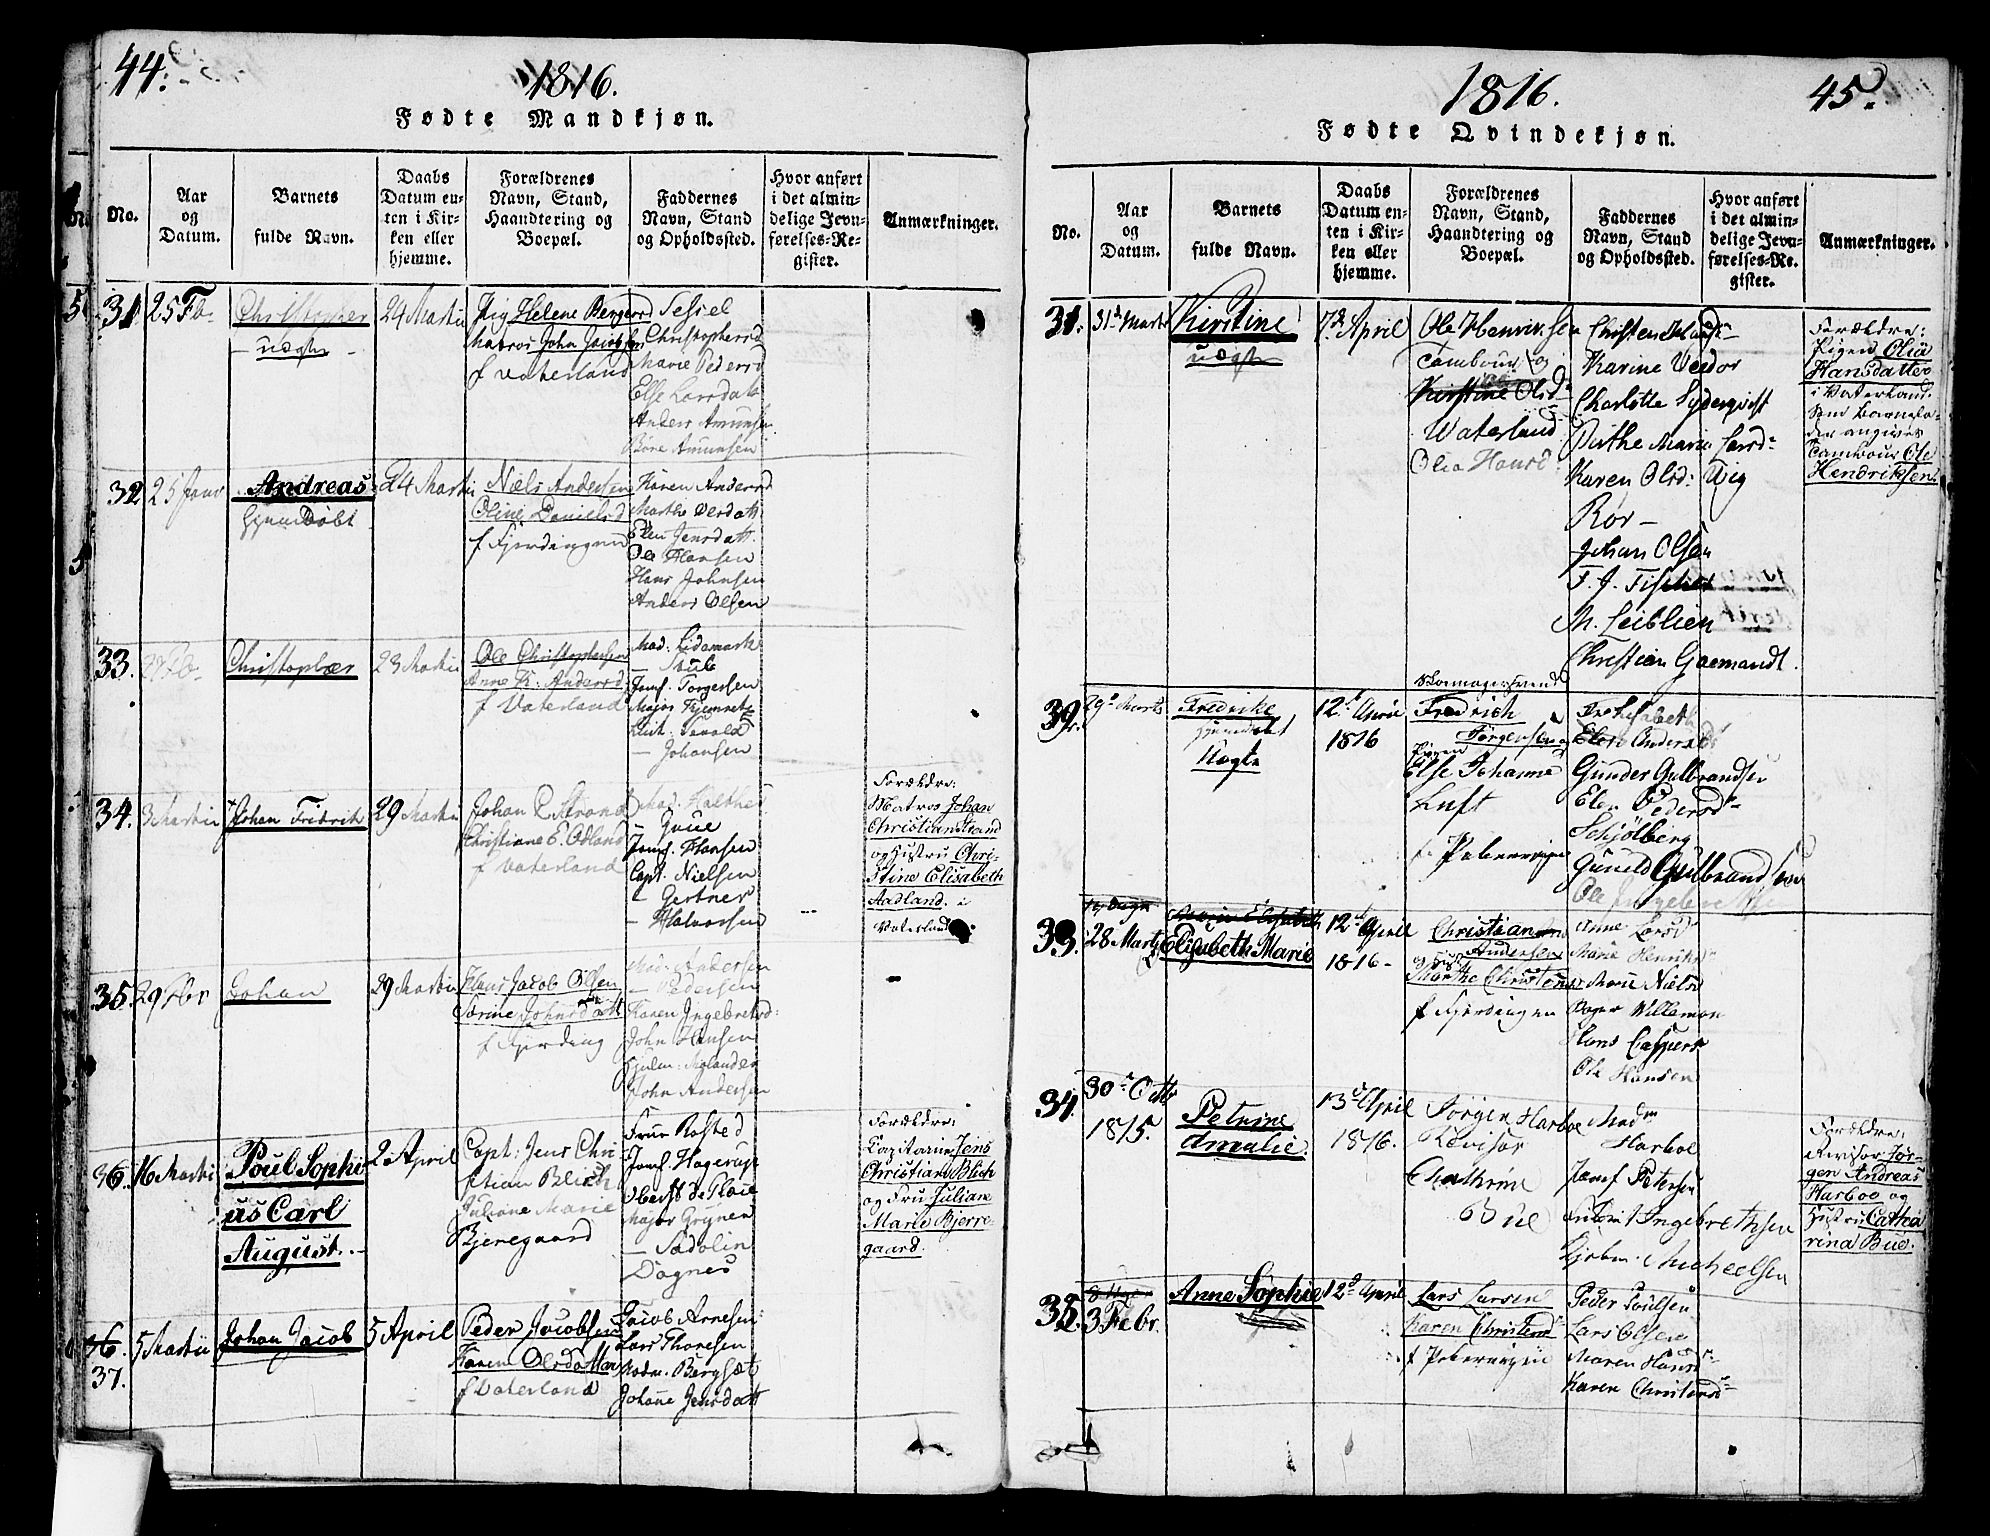 44.
1816.
Fødte Mandkjøn.
No.
Aar
og
Datum.
Barnets
fulde Navn.
Daabs
Datum en-
ten i Kir-
ken eller
hjemme.
Forældrenes
Navn, Stand,
Haandtering og
Boepæl.
Faddernes
Navn, Stand
og Opholdssted.
Hvor anført
i det almin-
delige Jevn-
førelses-Re-
gister.
Anmærkninger.
31
25 Fb.
Christopher
uægte
24 Martii
Pig Helene Bergersd
Matros John Jacobsen
f Vaterland
Sessel
Christophersd
Marie Pedersd
Else Larsdatt
Anders Amunsen
Børe Amunsen
32
25 Januar
Andreas
hjemdøbt
24 Martii
Niels Andersen
Oline Danielsd
f Fjerdingen
Karen Andersd
Marthe Persdatt
Elen Jensdatt.
Ole Hansen
Hans Johnsen
Anders Olsen
33.
Christopher
23 Martii
Ole Christophersen
Anne K: Andersd
f Vaterland
Mad: Lidemark
— Stub
Jomf. Torgersen
Major
Lieut.
— Johansen
34.
3 Martii
Johan Fredrik
29 Martii
Johan C Strand
Christiane E. Odland
f Vaterland
Mad.
—
Jomf. Hansen
Capt. Nielsen
— Gertner
— Halvorsen
Forældre:
Matros Johan
Christian Strand
og Hustru Chri-
stine Elisabeth
Aadland. i
Vaterland
35.
29 Fbr
Johan
29 Martii
Hans Jacob Olsen
Sørine Johnsdatt
f Fjerding
Mad: Andersen
— Pedersen
Karen Ingebretsd:
John Hansen
Hjulm: Molander
John Andersen
36.
16 Martii
Poul Sophi
us Carl
August.
2 April
Capt: Jens Chri
stian Blich
Juliane Marie
Bjeregaard
Frue Rosted
Jomf. Hagerup
Oberst de Thaie
Major Gryner
— Sadolin
Dagnes
Forældre:
Capitain Jens
Christian Blich
og Fru Juliane
Marie Bjerre-
gaard.
36.
37.
5 Martii
Johan Jacob
5 April
Peder Jacobsen
Karen Olsdatter
f Vaterland
Jacob Arnesen
Lars Thoresen
Madm. Bergsæt
Johane Jensdatt
1816.
45.
Fødte Qvindekjøn.
No.
Aar
og
Datum.
Barnets
fulde Navn.
Daabs
Datum en-
ten i Kir-
ken eller
hjemme.
Forældrenes
Navn, Stand,
Haandtering og
Boepæl.
Faddernes
Navn, Stand
og Opholdssted.
Hvor anført
i det almin-
delige Jevn-
førelses-Re-
gister.
Anmærkninger.
31.
31d Marts
Kirstine
uægte
7d April
Ole Henrivsen
Tambour og
Kirstine Olsd
Waterland
Olia Hansd:
Christen
Karine
Charlotte Syderqvist
Dirthe Marie Larsd
Karen Olsd:
Rør —
Johan Olsen
F. J. Fischer
M. Leiblien
Christian Gaemandt.
Forældre:
Pigen Olia
Hansdatter
i Vaterland
som Barnefa-
der angives
Tambour Ole
Hendriksen.
32.
29d Marts
Fredrike
hjemdøbt
Uægte
12d April
1816
Skomagersvend
Fredrich
Jørgensen og
Pigen
Else Johanne
Luft
f: Pebervigen
Elen Andersd
Gunder Gulbrandsen
Elen Pedersd
Schjølberg
Gunild Gulbrandsen
Ole Ingebretsen
33.
28 Marts
Maria Elisabeth
Elisabeth Marie
12d April
1816 -
Christian
Andersen
Marthe Christens
f Fjerdingen
Anne Larsd
Marie Henriks
Marie Niels
Roger Willemon
Hans Caspers
Ole Hansen
34.
30d Octbr
1815.
Petrine
Amalie.
13d April
1816.
Jørgen Harboe
Revisor
Cathrine
Bue
Mad
Harboe
Jomf Petersen
Ingebrethsen
Micheelsen
Forældre:
Revisor Jør-
gen Andreas
Harboe og
Hustru Catha
rina Bue.
35.
3 Febr.
Anne Sophie
12d April
Lars Larsen
Karen Christensd
f Pebervigen
Peder Poulsen
Lars Olsen
Maren Hansd
Karen Christensd